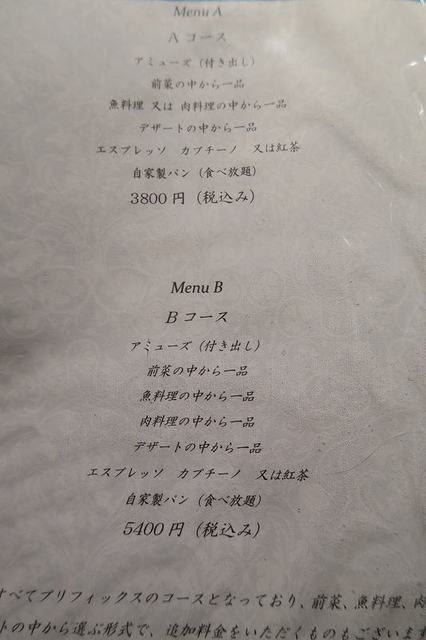 Menu A
A コース
アミューズ (付き出し)
前菜の中から一品
魚料理 又は 肉料理の中から一品
デザートの中から一品
エスプレッソ カプチーノ 又は紅茶
自家製パン (食べ放題)
3800 円 (税込み)
Menu B
B コース
アミューズ (付き出し)
前菜の中から一品
魚料理の中から一品
肉料理の中から一品
デザートの中から一品
エスプレッソ カプチーノ 又は紅茶
自家製パン (食べ放題)
5400 円 (税込み)
すべてプリフィックスのコースとなっており、前菜、魚料理、肉
トの中から選ぶ形式で、追加料金をいただくものもございます